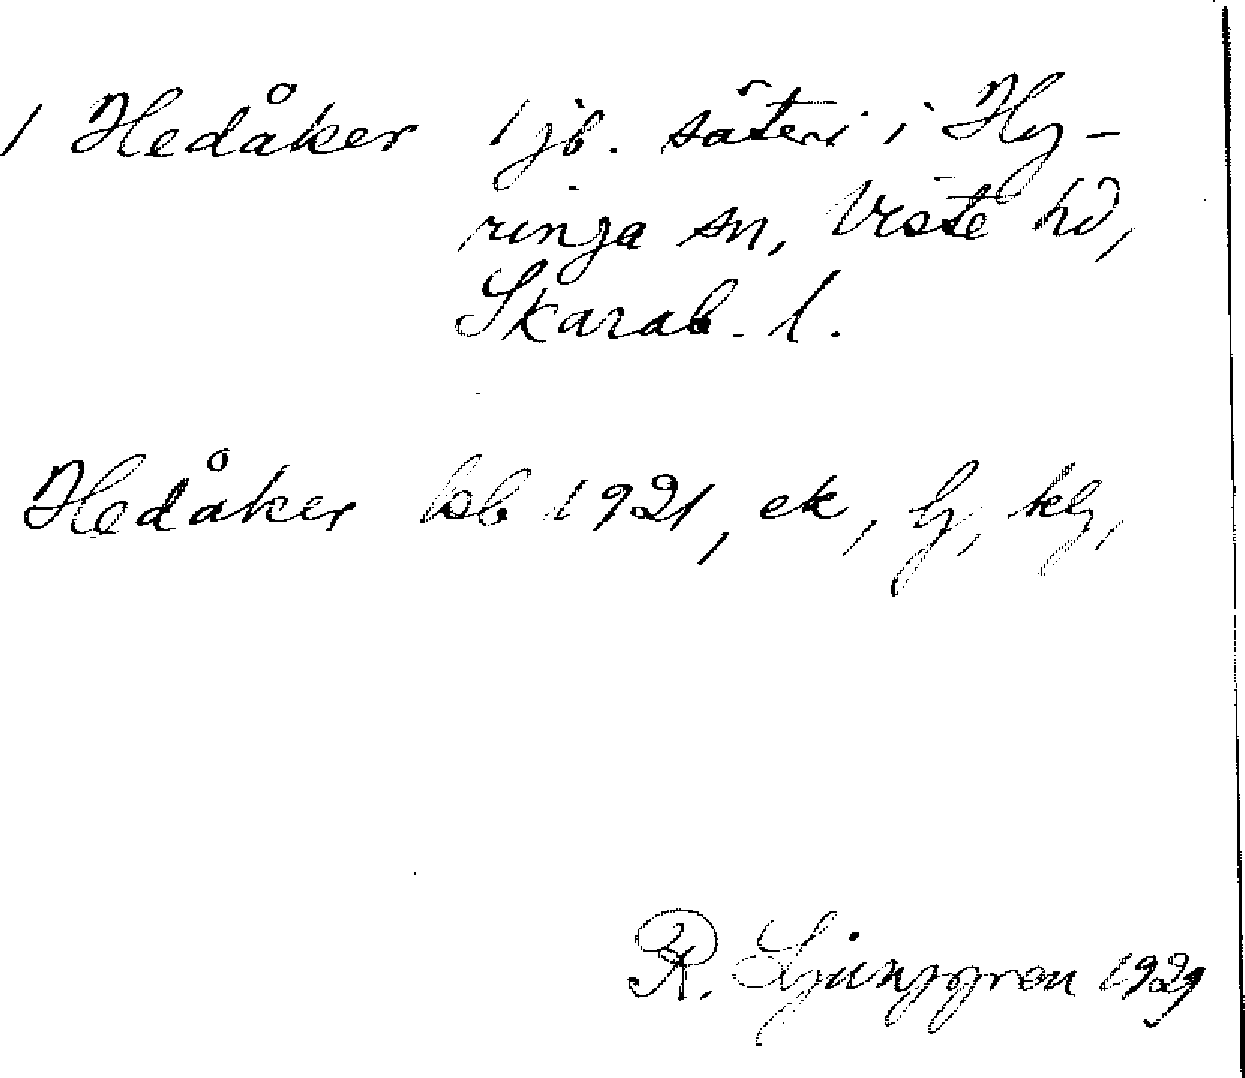 / Hedåker 1 jb. säteri i Hy-
ringa sn, Viste hd,
Skarab. l.
Hedåker lsb 1921, ek, lj, kg,
R. Ljunggren 1929